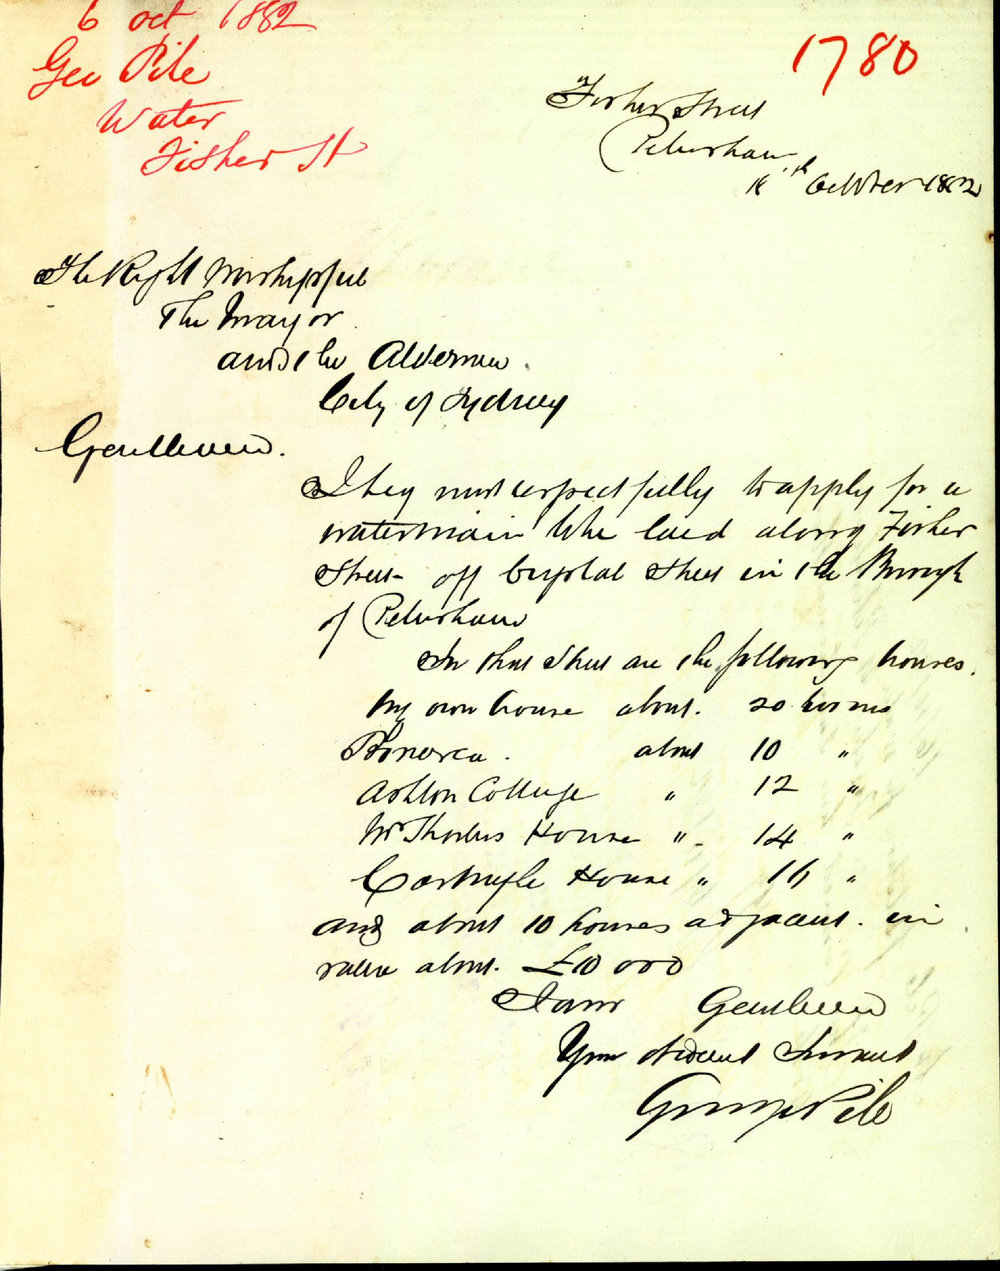 6 Oct 1882
Geo Pile
Water
Fisher St
1780
Fisher Street
Petersham
th October 1882
The Right Worshipful
The Mayor
and the Aldermen
City of Sydney
Gentlemen.
I beg most respectfully to apply for a
watermain to be laid along Fisher
Street off Crystal Street in the Borough
of Petersham
In that Street are the following houses.
My own house about. 20 rooms
about 10 "
Ashton College " 12 "
Mr House " 14 "
House " 16 "
and about 10 houses adjacent. in
value about. £10 000
I am Gentlemen
Your obedient Servant
George Pile